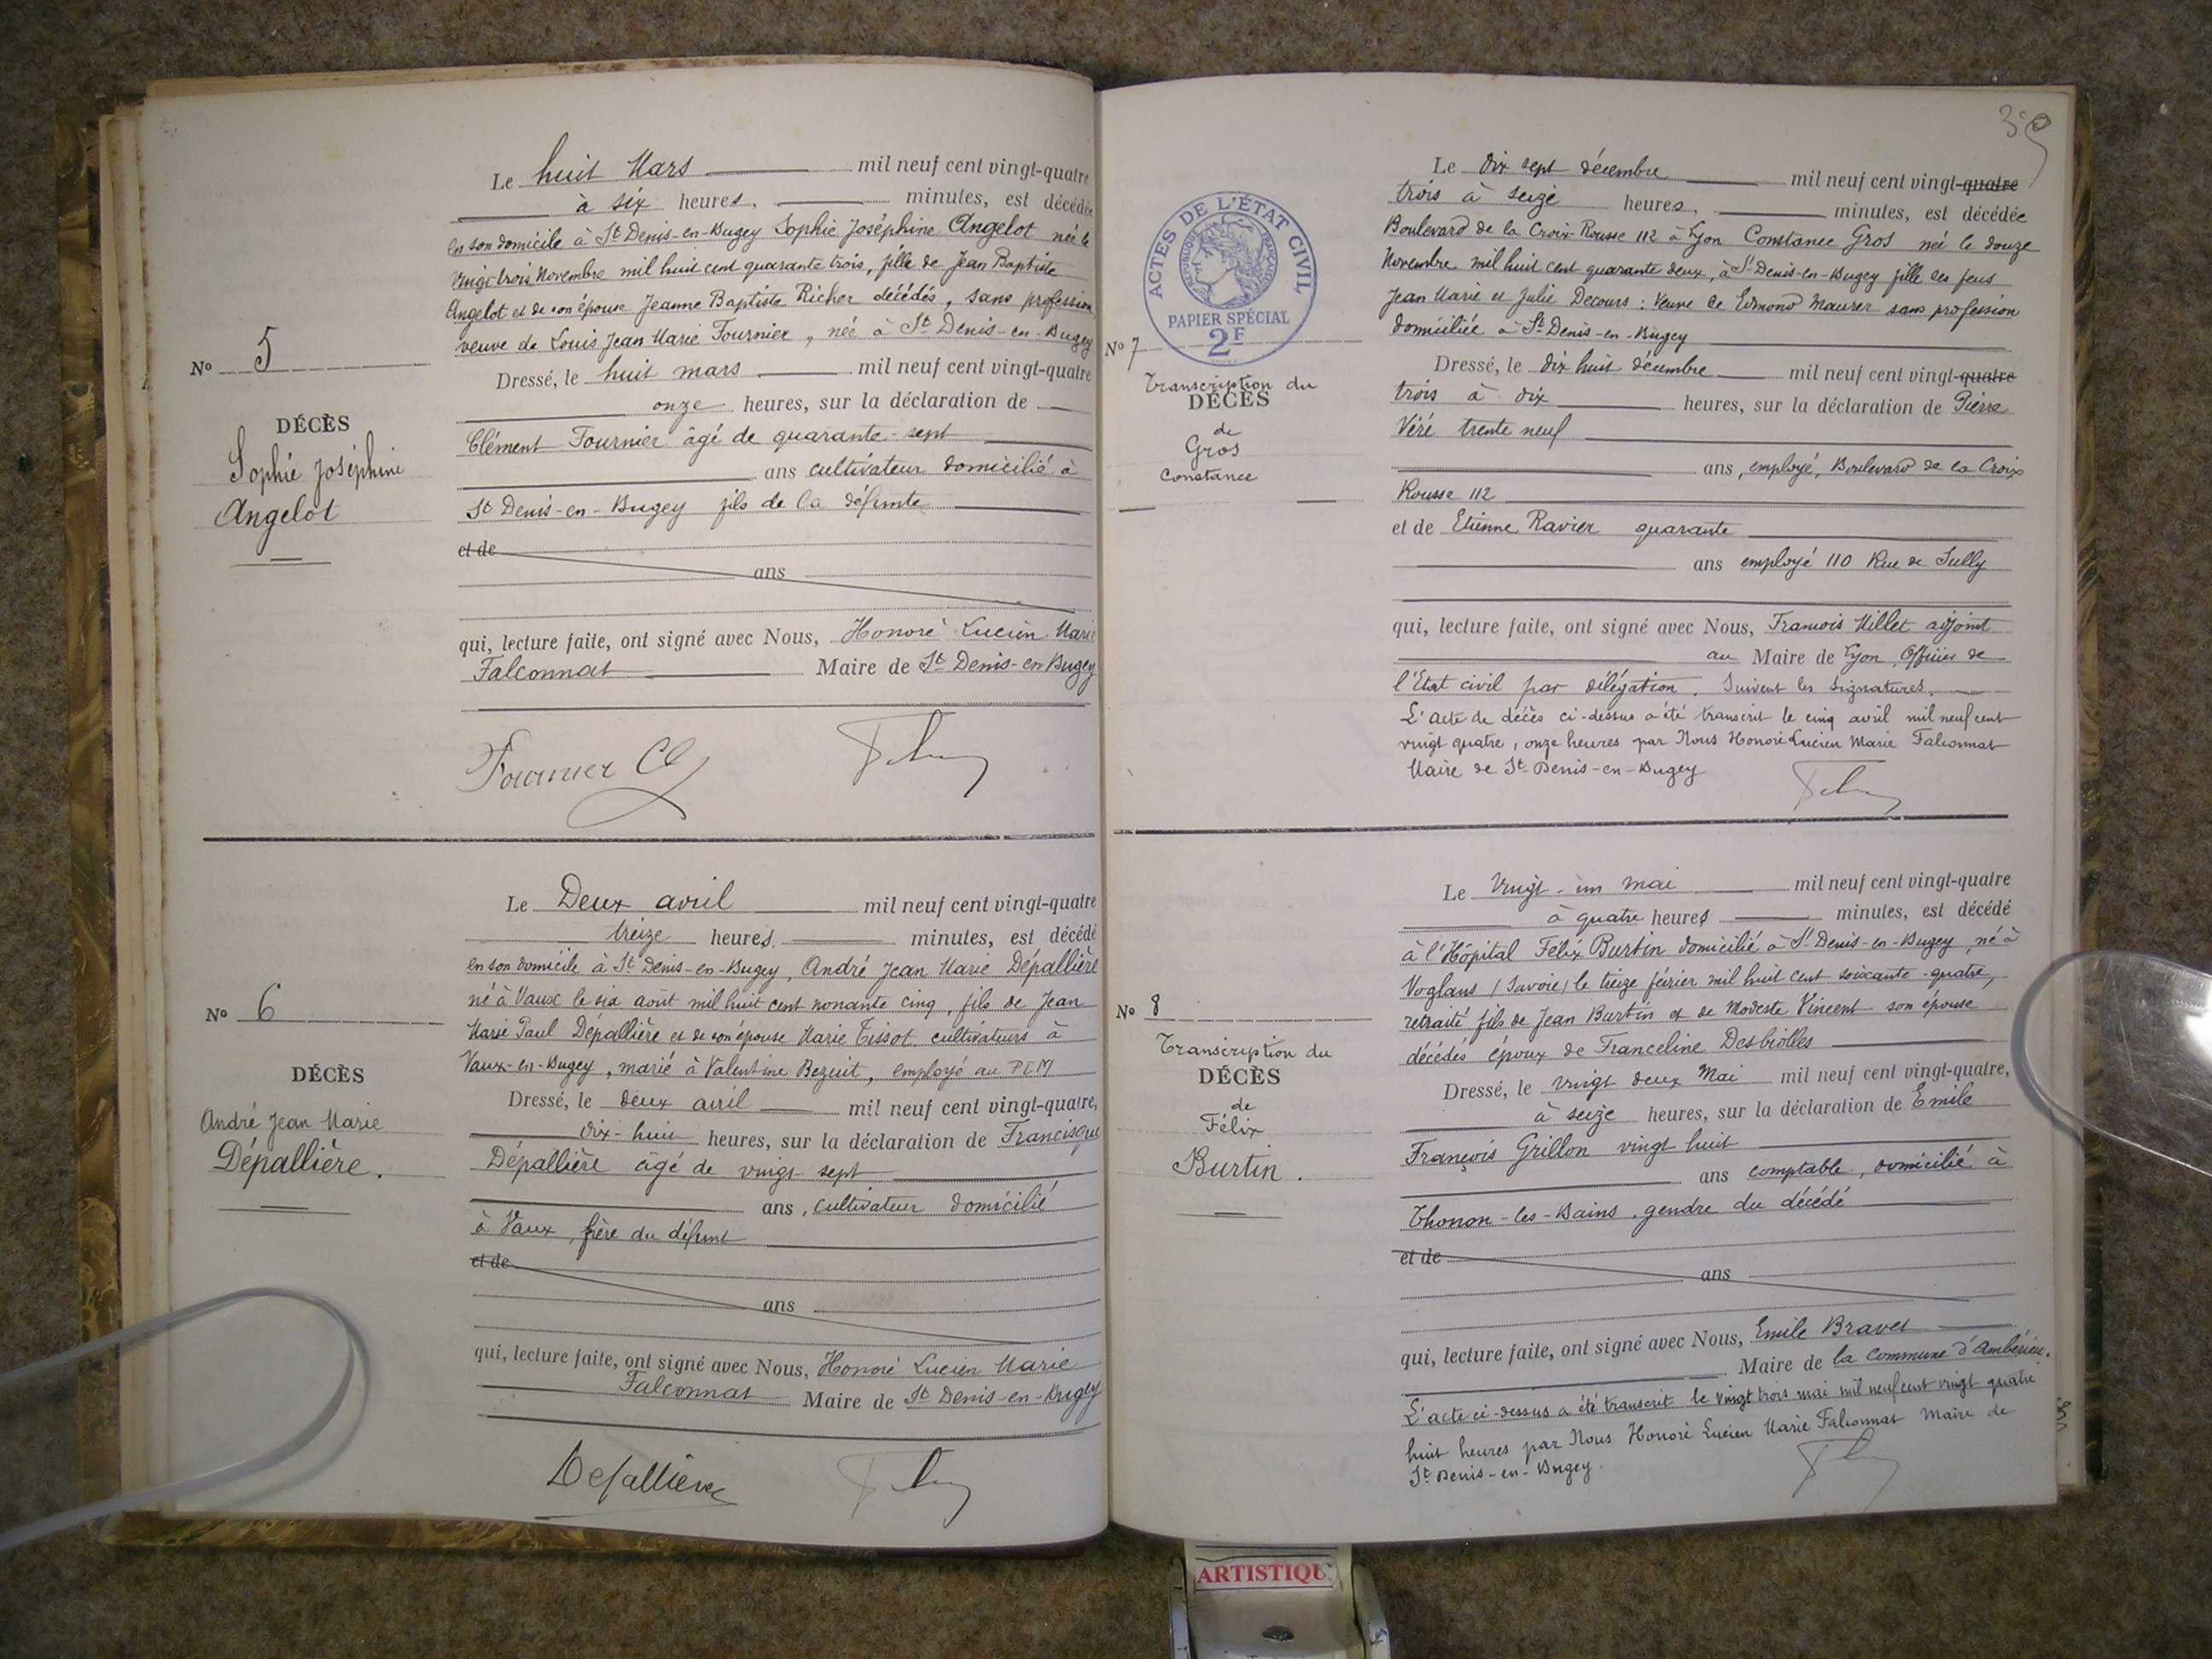 Le huit Mars mil neuf cent vingt-quatre
à six heures, minutes, est décédée
en son domicile à St Denis-en-Bugey Sophie Joséphine Angelot née le
vingt trois Novembre mil huit cent quarante trois, fille de Jean Baptiste
Angelot et de son épouse Jeanne Baptiste Richer décédés, sans profession
veuve de Louis Jean Marie Fournier, née à St Denis-en-Bugey
No 5
Dressé, le huit mars mil neuf cent vingt-quatre
onze heures, sur la déclaration de
DÉCÈS
Sophie Joséphine
Angelot
Clément Fournier âgé de quarante-sept
ans cultivateur domicilié à
St Denis-en-Bugey fils de la défunte
et de
ans
qui, lecture faite, ont signé avec Nous, Honoré Lucien Marie
Falconnat Maire de St Denis-en-Bugey
Fournier Cl
Le Deux avril mil neuf cent vingt-quatre
treize heures, minutes, est décédé
en son domicile à St Denis-en-Bugey, André Jean Marie Dépallière
né à Vaux le six août mil huit cent nonante cinq, fils de Jean
Marie Paul Dépallière et de son épouse Marie Tissot cultivateurs à
Vaux-en-Bugey, marié à Valentine Bezuit, employé au PLM
No 6
DÉCÈS
André Jean Marie
Dépallière.
Dressé, le deux avril mil neuf cent vingt-quatre,
dix-huit heures, sur la déclaration de Francisque
Dépallière âgé de vingt-sept
ans, cultivateur domicilié
à Vaux, frère du défunt
et de
ans
qui, lecture faite, ont signé avec Nous, Honoré Lucien Marie
Falconnat Maire de St Denis-en-Bugey
Depallière
ACTES DE L'ÉTAT CIVIL
RÉPUBLIQUE FRANÇAISE
PAPIER SPÉCIAL
2F
Le dix sept décembre mil neuf cent vingt-quatre
trois à seize heures, minutes, est décédée
Boulevard de la Croix-Rousse 112 à Lyon Constance Gros née le douze
Novembre mil huit cent quarante deux, à St Denis-en-Bugey fille des feus
Jean Marie et Julie Decours : Veuve de Edmond Maurer sans profession
domiciliée à St Denis-en-Bugey
No 7
Transcription du
DÉCÈS
de
Gros
Constance
Dressé, le dix huit décembre mil neuf cent vingt-quatre
trois à dix heures, sur la déclaration de Pierre
Véré trente neuf
ans, employé, Boulevard de la Croix
Rousse 112
et de Etienne Ravier quarante
ans employé 110 Rue de Sully
qui, lecture faite, ont signé avec Nous, François Millet adjoint
au Maire de Lyon, Officier de
l'Etat civil par délégation. Suivent les signatures.
L'acte de décès ci-dessus a été transcrit le cinq avril mil neuf cent
vingt quatre, onze heures par Nous Honoré Lucien Marie Falconnat
Maire de St Denis-en-Bugey
Le Vingt-un mai mil neuf cent vingt-quatre
à quatre heures minutes, est décédé
à l'Hôpital Félix Burtin domicilié à St Denis-en-Bugey, né à
Voglans (Savoie) le treize février mil huit cent soixante-quatre,
retraité fils de Jean Burtin et de Modeste Vincent son épouse
décédés époux de Franceline Desbiolles
No 8
Transcription du
DÉCÈS
de
Félix
Burtin.
Dressé, le vingt deux Mai mil neuf cent vingt-quatre,
à seize heures, sur la déclaration de Emile
François Grillon vingt huit
ans comptable, domicilié à
Thonon-les-Bains, gendre du décédé
et de
ans
qui, lecture faite, ont signé avec Nous, Emile Bravet
Maire de la Commune d'Ambérieu.
L'acte ci-dessus a été transcrit le vingt trois mai mil neuf cent vingt quatre
huit heures par Nous Honoré Lucien Marie Falconnat Maire de
St Denis-en-Bugey.
ARTISTIQU